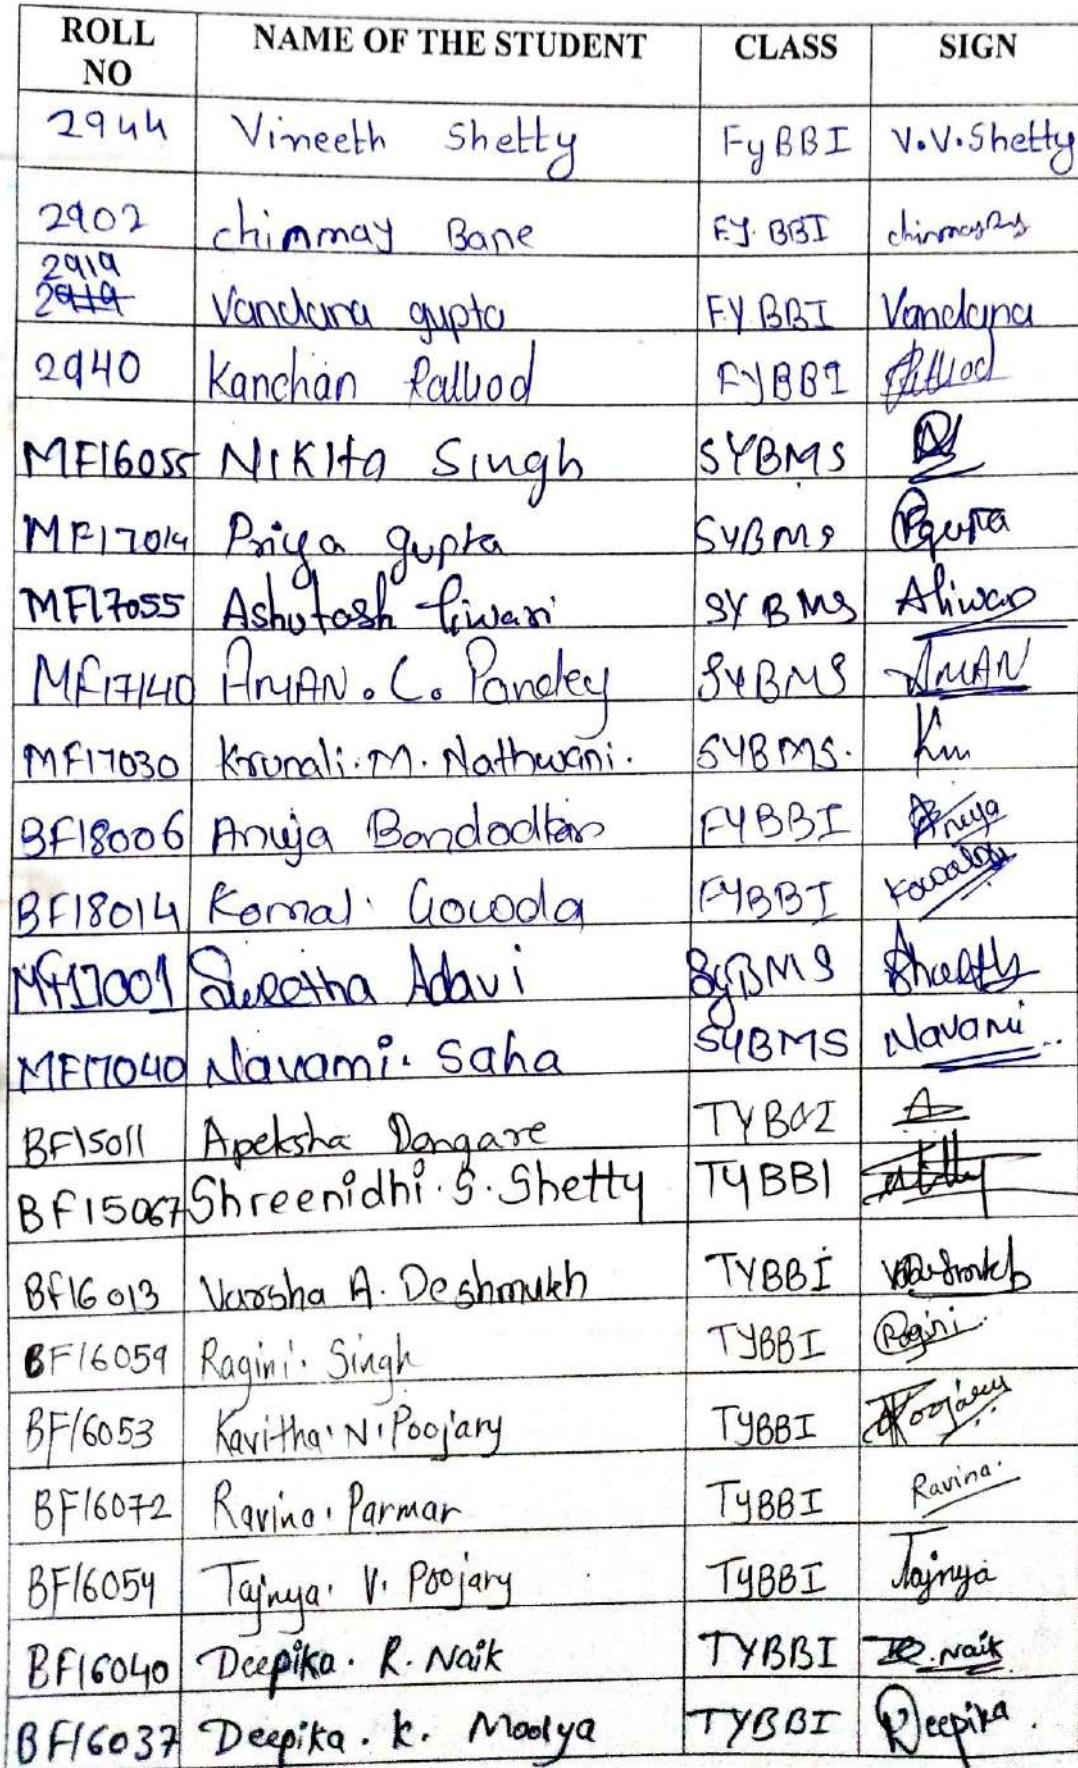 ROLL NO NAME OF THE STUDENT CLASS SIGN
2944 Vineeth Shetty FyBBI V.V.Shetty
2902 chinmay Bane F.Y. BBI
2919
2919 Vandana gupta F.Y.BBI Vandana
2940 Kanchan Rathod FYBBI Rathod
MF16055 NIKITA Singh SYBMS
MF17014 Priya gupta SYBMS Pgupta
MF17055 Ashutosh tiwari SYBMS Atiwari
MF17140 AMAN. C. Pandey SYBMS AMAN
MF17030 Krunali.M. Nathwani. SYBMS. Km
BF18006 Anuja Bandodkar FYBBI Anuja
BF18014 Komal. Gowda FYBBI
MF17001 Swetha Adavi SyBMS Shwetha
MF17040 Navami. Saha SYBMS Navami
BF15011 Apeksha Dongare TYBBI A
BF15067 Shreenidhi.S. Shetty TYBBI
BF16013 Varsha A. Deshmukh TYBBI
BF16059 Ragini. Singh TYBBI Ragini.
BF16053 Kavitha.N.Poojary TYBBI Poojary
BF16072 Ravina. Parmar TYBBI Ravina.
BF16054 Tajnya. V. Poojary TYBBI Tajnya
BF16040 Deepika. R. Naik TYBBI R. Naik
BF16037 Deepika. K. Moolya TYBBI Deepika.